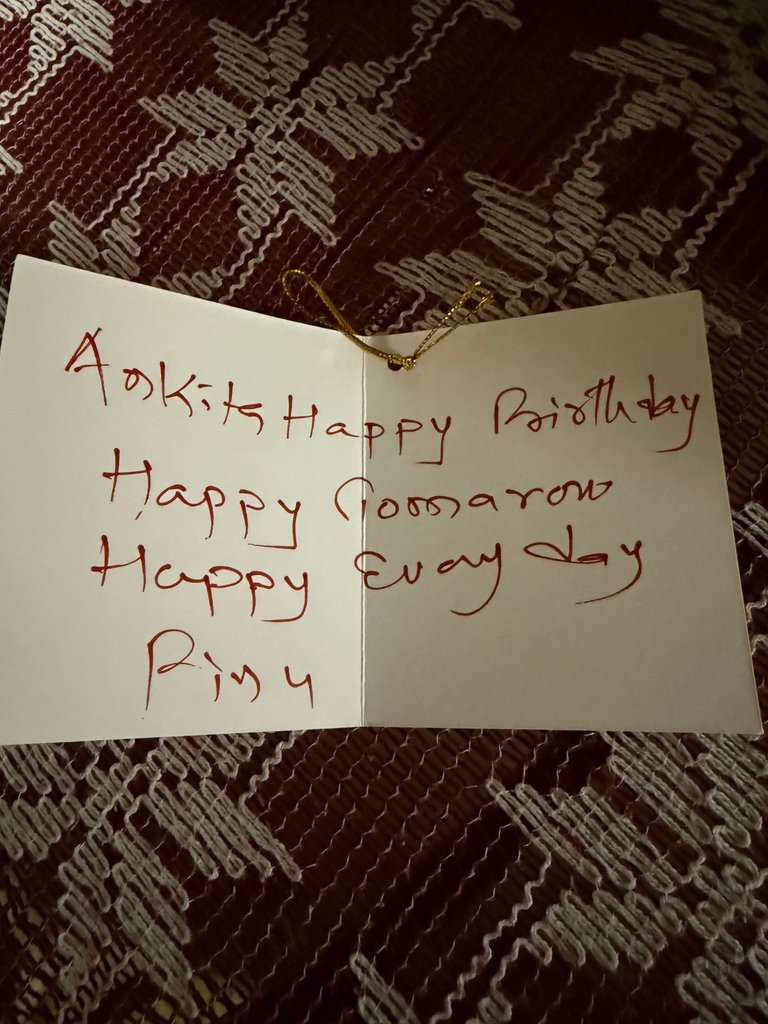 Ankita Happy Birthday
Happy Tomarow
Happy Evary day
Pinu